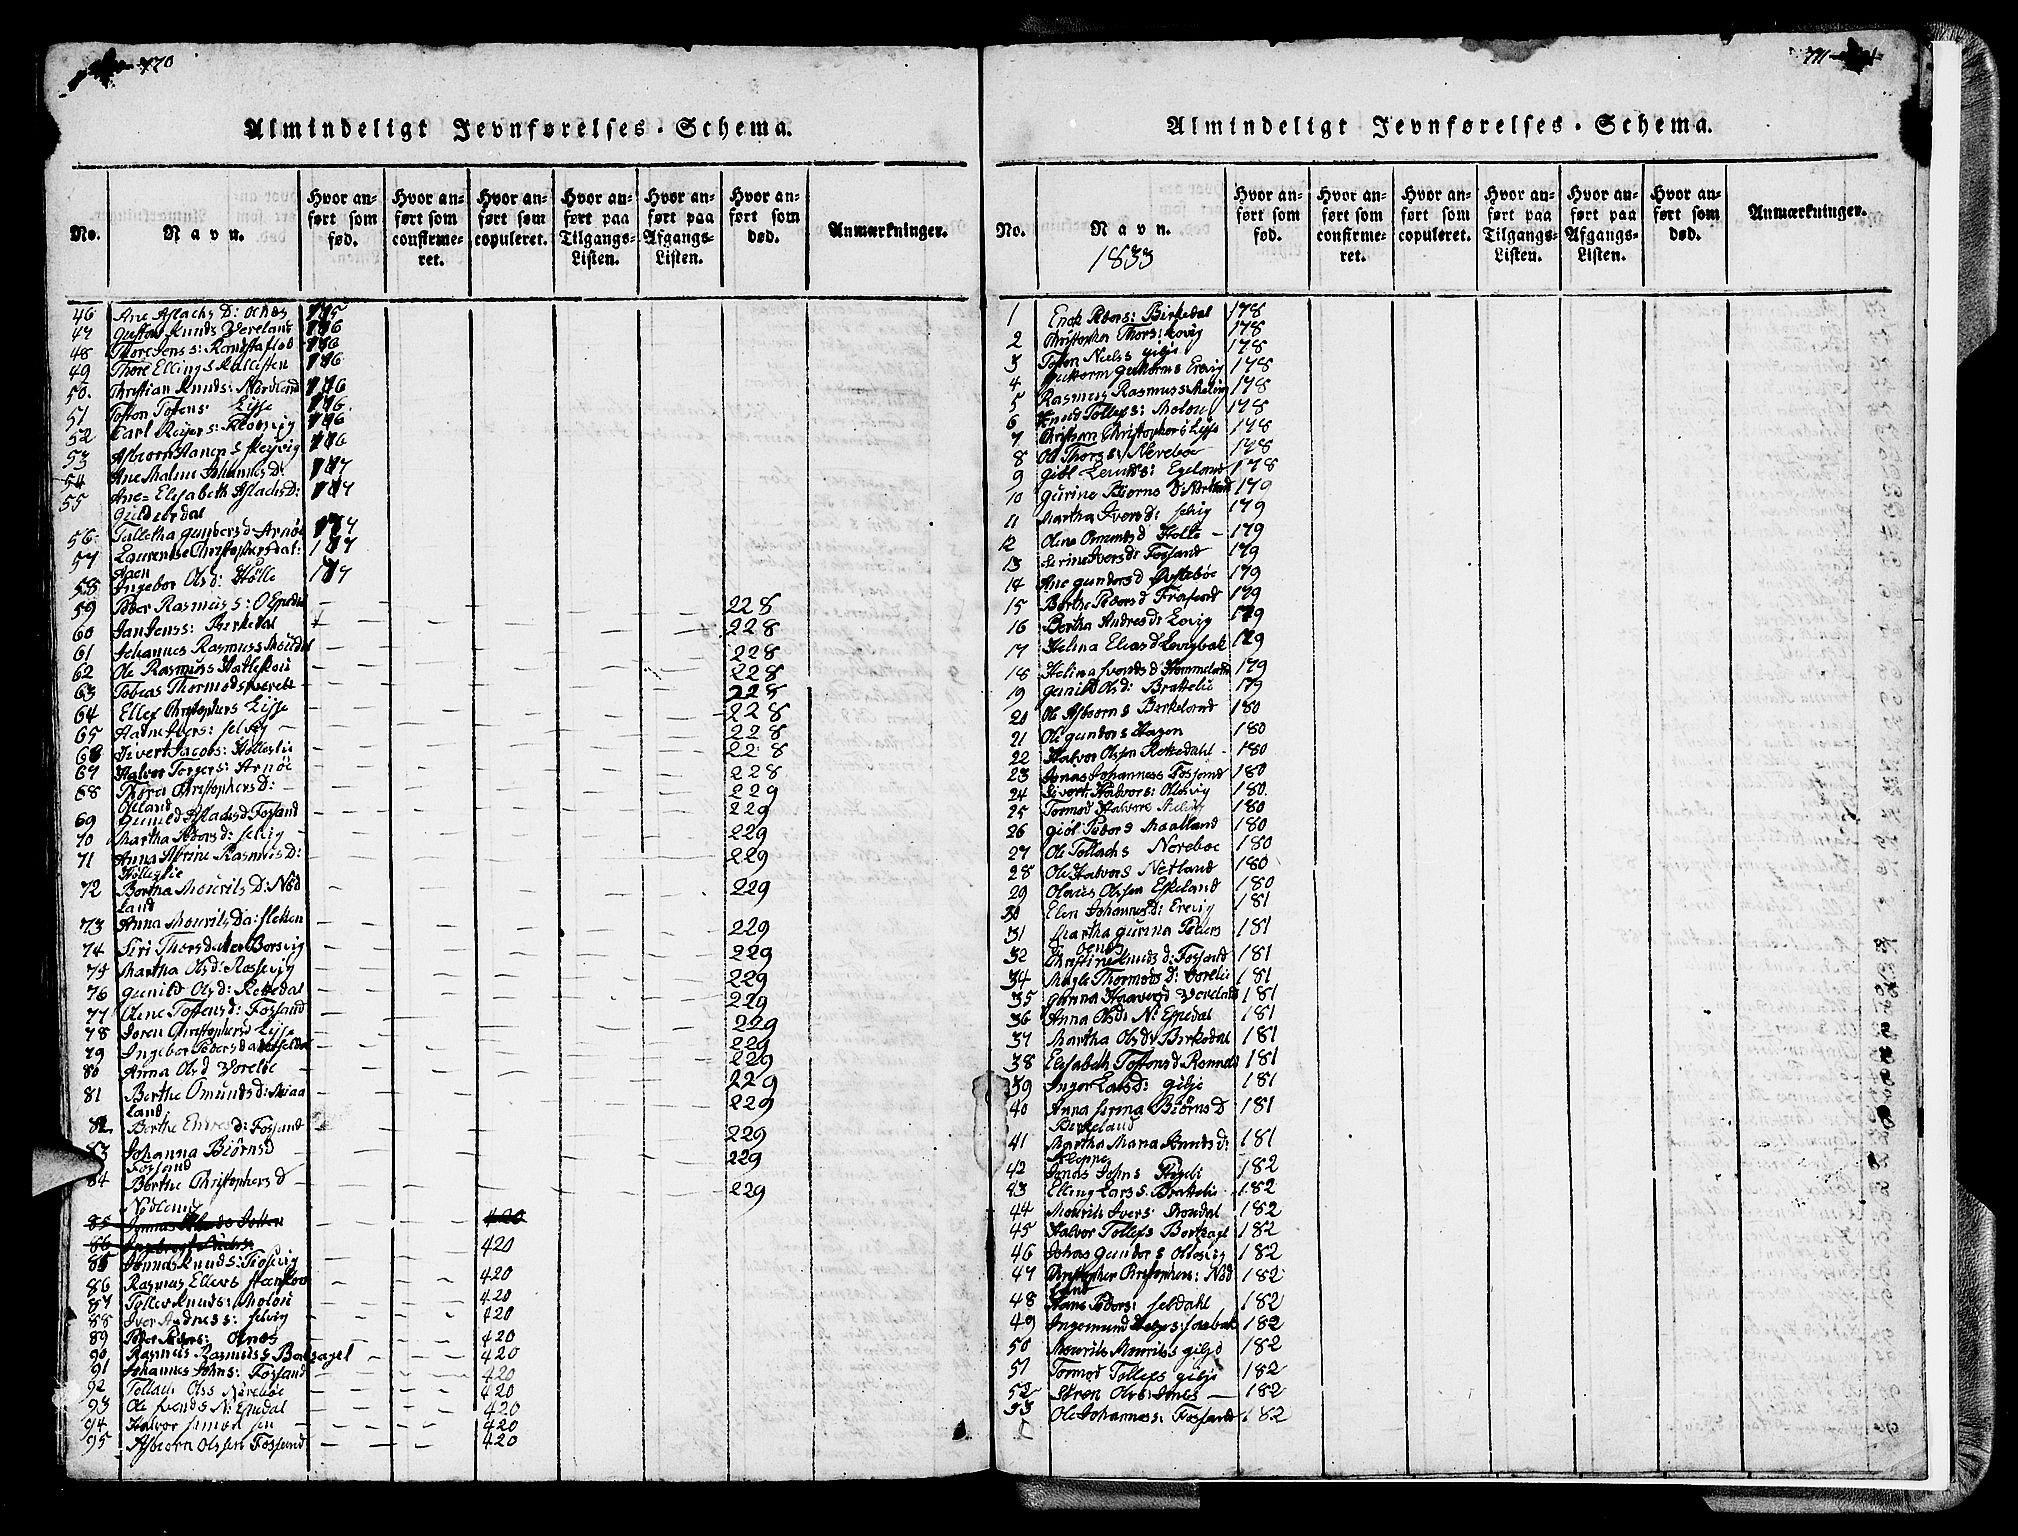 770
Almindeligt Jevnførelses-Schema.
No.
Navn.
Hvor anført som fød.
Hvor anført som confirmeret.
Hvor anført som copuleret.
Hvor anført paa Tilgangs-Listen.
Hvor anført paa Afgangs-Listen.
Hvor anført som død.
Anmærkninger.
46 Ane Aslachs D: Olnæs 175
47 Gustav Knuds Vereland 176
48 Thore Jens s: 176
49 Thore Ellings 176
50. Christian Knuds: Nordland 176
51 Tosten Tostens: Lysse 176.
52 Carl Reiers: 176
53 Asbiørn Hanens 176
54 Ane Malene Johannis D: 177
55 Ane Elisabeth Aslachs D: 177
56. Talletha Gunders d Arnøe 177
57 Laurentse Christophersdat: 177
Haen
58 Ingebor Ols d: Hølle 177
59 Peder Rasmus s: O Espedal 228
60 Jan Jens s: Berkedal 228
61 Johannes Rasmuss 228
62 Ole Rasmus s Hatleskou 228
63 Tobias Thormods 228
64 Ellef Christophers Lysse 228
65 Aadne Ivers: selvig 228
66 Sivert Jacobs: Hølleslie 228
67 Halvor Torgers: Arnøe 228
68 Thora Christophers D: 229
Oseland
69 Gunild Aslachs d Fossand 229
70 Martha Peders d: selvig 229
71 Anna Rasmus D: 229
Hølleslie
72 Bertha Mourits D: Nød 229
land
73 Anna Mourits Da: 229
74 Siri Thors Datter Borsvig 229
75 Martha Ols d: Rossevig 229
76 Gunild Ols d: Rettedal 229
77 Oline Tostens d: Fossand 229
78 Soren Christophers d Lysse 229
79 Ingebor Peders da 229
80 Anna Ols d Vorelie 229
81 Berthe Omunds d: Maa 229
land
82 Berthe d: Fossand 229
83 Johanna Biørns d 229
Fossand
84 Berthe Christophers d 229
Nødland
85 420
86 420
85 Jonnas Knuds: 420
86 Rasmus Ellefs 420
87 Tollef Knuds: Molou 420
88 Iver Aadness: selvig 420
89 Peder Peders: Olnæs 420
90 Rasmus Rasmus s Botsagel 420
91 Johannes Johns: Fossand 420
92 Tollach Ols s Nereboe 420
93 Ole Svends N: Espedal 420
94 Halvor Simon sen 420
95 Asbiorn Olssen Fossand 420
771
Almindeligt Jevnførelses-Schema.
No.
Navn.
1833
Hvor anført som fød.
Hvor anført som confirmeret.
Hvor anført som copuleret.
Hvor anført paa Tilgangs-Listen.
Hvor anført paa Afgangs-Listen.
Hvor anført som død.
Anmærkninger.
1 Enok Peders: Birkedal 178
2 Christopher Thors: Lovig 178
3 Tosten Niels s Gilje 178
4 Guttorm Guttorms Erevig 178
5 Rasmus Rasmus s: Meling 178
6 Knud Tollefs: Molou 178
7 Christian Christophers Lysse 178
8 Ole Thors s: Nereboe 178
9 Giøl Egeland 178
10 Gurine Biørns D: Nortland 179
11 Martha Ivers d: selvig 179
12 Oline Omunds d Holle 179
13 Serine Ivers d: Fossand 179
14 Ane Gunders d 179
15 Berthe Peders d Frafiord 179
16 Bertha Andres d: Lovig 179
17 Helina Elias d Levigbak 179
18 Helina Svends d Hommeland 179
19 Gunild Ols d: Brattelie 179
20 Ole Asbiorns Birkeland 180
21 Ole Gunders Hagen 180
22 Halvor Olssen Rettedahl 180
23 Jonas Johanness Fossand 180
24 Sivert Halvors: Oltesvig 180.
25 Tormod Halvors Meling 180
26 Giøl Peders Maalland 180
27 Ole Tollachs Nereboe 180
28 Ole Halvors Netland 180
29 Olaus Olssen Eskeland 180
30 Elen Johannes d: Erevig 181
31 Martha Gurina Peders 181
D: Olnæs
32 Christine Knuds d: Fossand 181
34 Magle Thormods D: Vorelie 181
35 Gunna Haavers d Voreland 181
36 Anna Ols d: N: Espedal 181
37 Martha Ols d: Birkedal 181
38 Elisabeth Tostens d Rommeli 181
39 Inger Lars d: Gilje 181
40 Anna serina Biørns d 181
Birkeland
41 Martha Maria Knuds d: 181
Kleppe
42 Jonas Johns 182
43 Elling Lars s: Brattelie 182
44 Mourits Ivers: 182
45 Halvor Tollefs Botsagel 182
46 Johas Gunders Oltesvig 182
47 Christopher Christophers: Nød 182
land
48 Hans Peders: seldahl 182
49 Ingemund Helges: 182
50 Mourits Mourits s Gilje 182
51 Tormod Tollefs Gilje 182
52 Søren Ols: 182
53 Ole Johannes s: Fossand 182